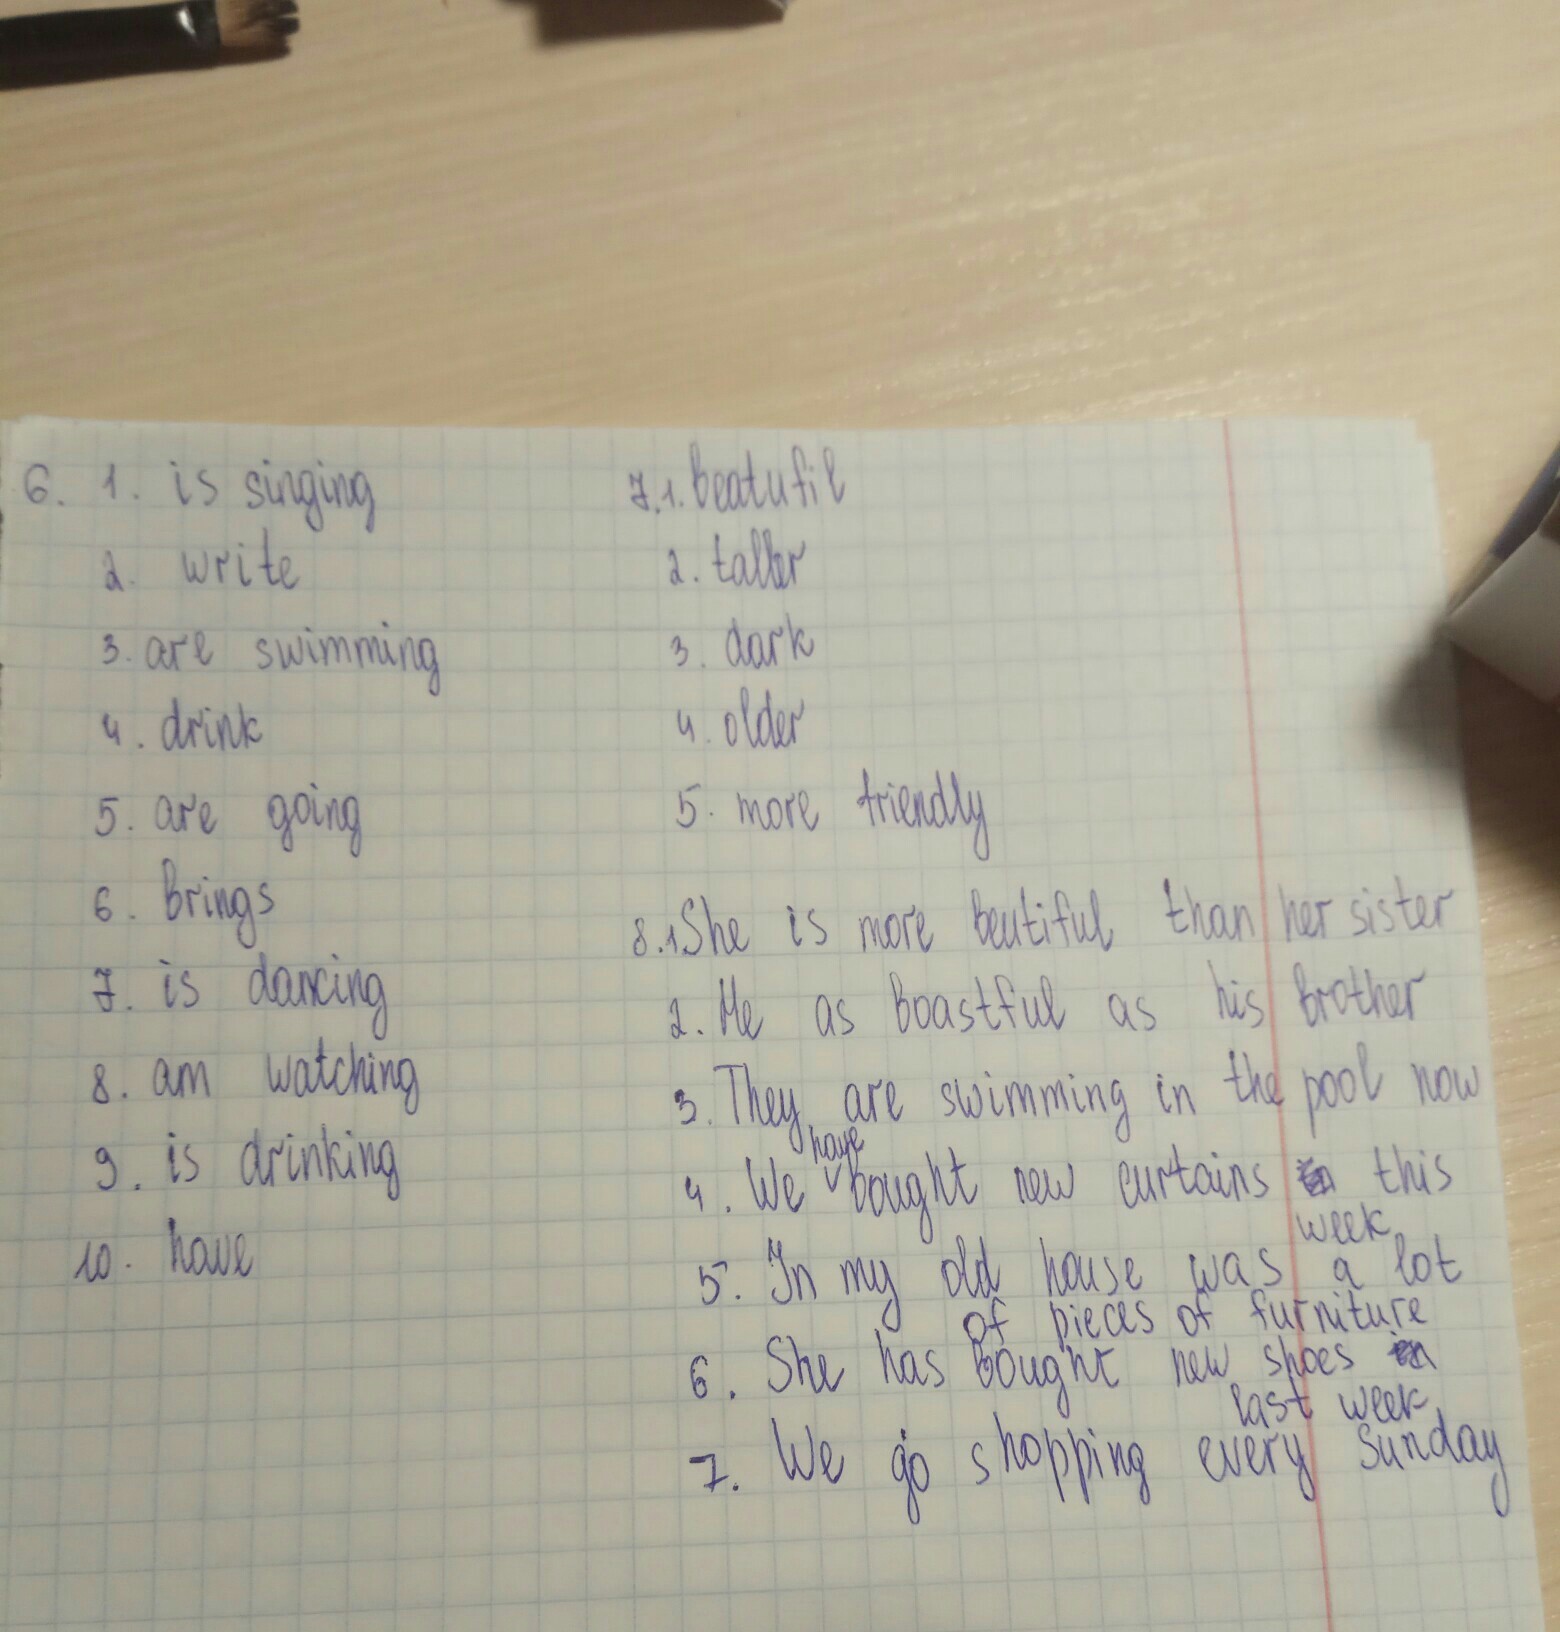 6. 1. is singing
2. write
3. are swimming
4. drink
5. are going
6. brings
7. is dancing
8. am watching
9. is drinking
10. have
7.1. beatufil
2. taller
3. dark
4. older
5. more friendly
8.1She is more beutiful than her sister
2. He as boastful as his brother
3. They are swimming in the pool now
have
4. We bought new curtains this
week
5. In my old house was a lot
of pieces of furniture
6. She has bought new shoes
last week
7. We go shopping every Sunday